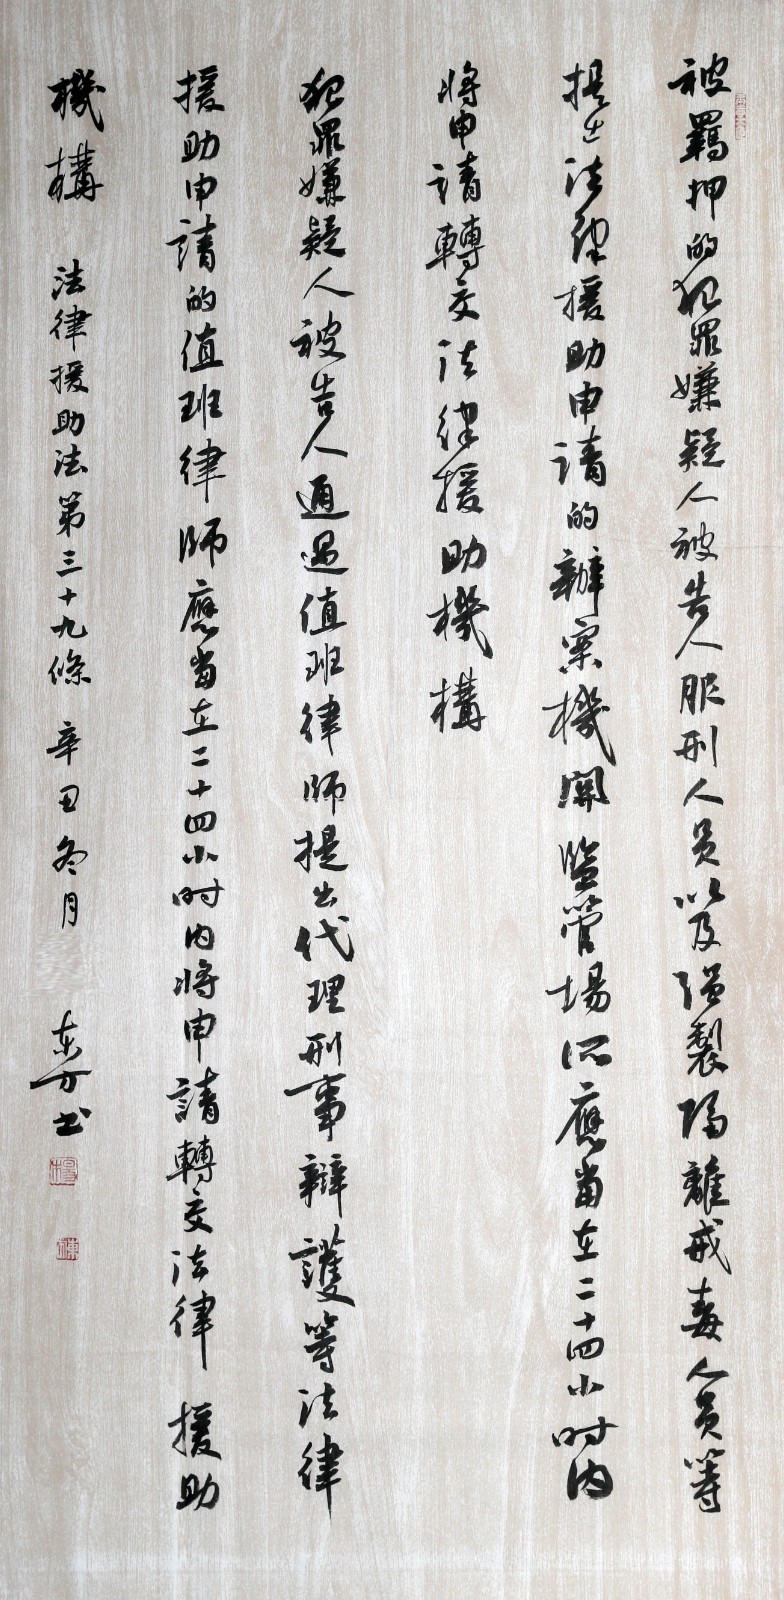 被羈押的犯罪嫌疑人被告人服刑人员以及强製隔離戒毒人员等
提出法律援助申请的辦案機関監管場所應當在二十四小时内
将申请轉交法律援助機構
犯罪嫌疑人被告人通過值班律师提出代理刑事辯護等法律
援助申请的值班律师應當在二十四小时内将申請轉交法律援助
機構
法律援助法第三十九條 辛丑冬月
东方书